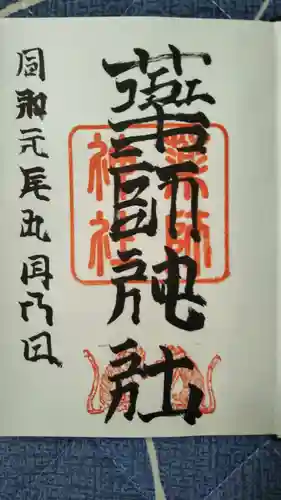 薬師神社
薬師
神社
令和元年五月八日